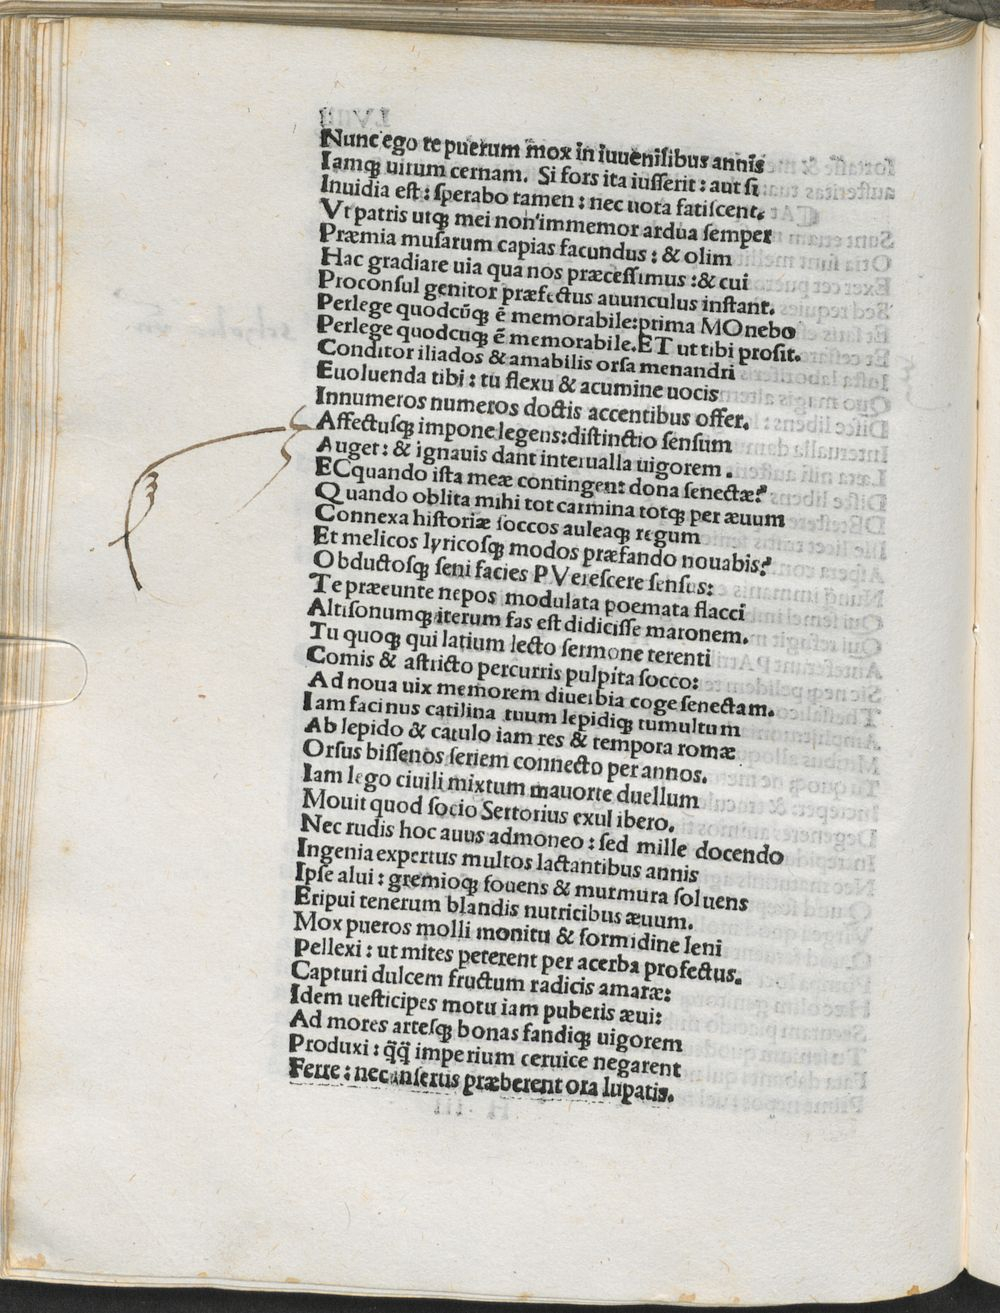 Nunc ego te puerum mox in iuuenilibus annis
Iamqꝫ uirum cernam. Si fors ita iusserit: aut si
Inuidia est: sperabo tamen: nec uota fatiscent.
Vt patris utqꝫ mei non immemor ardua semper
Præmia musarum capias facundus: & olim
Hac gradiare uia qua nos præcessimus: & cui
Proconsul genitor præfectus auunculus instant.
Perlege quodcūqꝫ ē memorabile: prima MOnebo
Perlege quodcuqꝫ ē memorabile. ET ut tibi prosit.
Conditor iliados & amabilis orsa menandri
Euoluenda tibi: tu flexu & acumine uocis
Innumeros numeros doctis accentibus offer.
Affectusqꝫ impone legens: distinctio sensum
Auget: & ignauis dant interualla uigorem.
ECquando ista meæ contingent dona senectæ?
Quando oblita mihi tot carmina totqꝫ per æuum
Connexa historiæ soccos auleaqꝫ regum
Et melicos lyricosqꝫ modos præfando nouabis?
Obductosqꝫ seni facies PVerescere sensus:
Te præeunte nepos modulata poemata flacci
Altisonumqꝫ iterum fas est didicisse maronem.
Tu quoqꝫ qui latium lecto sermone terenti
Comis & astricto percurris pulpita socco:
Ad noua uix memorem diuerbia coge senectam.
Iam facinus catilina tuum lepidiqꝫ tumultum
Ab lepido & catulo iam res & tempora romæ
Orsus bissenos seriem connecto per annos.
Iam lego ciuili mixtum mauorte duellum
Mouit quod socio Sertorius exul ibero.
Nec rudis hoc auus admoneo: sed mille docendo
Ingenia expertus multos lactantibus annis
Ipse alui: gremioqꝫ fouens & murmura soluens
Eripui tenerum blandis nutricibus æuum.
Mox pueros molli monitu & formidine leni
Pellexi: ut mites peterent per acerba profectus.
Capturi dulcem fructum radicis amaræ:
Idem uesticipes motu iam puberis æui:
Ad mores artesqꝫ bonas fandiqꝫ uigorem
Produxi: q̄q̄ imperium ceruice negarent
Ferre: nec insertis præberent ora lupatis.